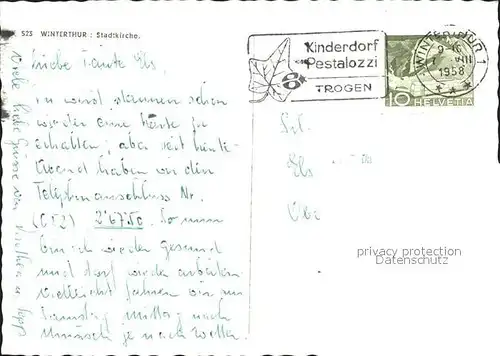 525 WINTERTHUR : Stadtkirche.
Kinderdorf
Pestalozzi
TROGEN
WINTERTHUR 1
1958
10 HELVETIA
Liebe Tante Els,
Du wirst staunen schon
wieder eine Karte zu
erhalten; aber seit heute
Abend haben wir den
Telephonanschluss Nr.
(052) 2'67.50. So nun
bin ich wieder gesund
und darf wieder arbeiten.
Vielleicht fahren wir am
Samstag Mittag nach
Urnäsch je nach Wetter.
Viele liebe Grüsse von
Frl.
Els
privacy protection
Datenschutz